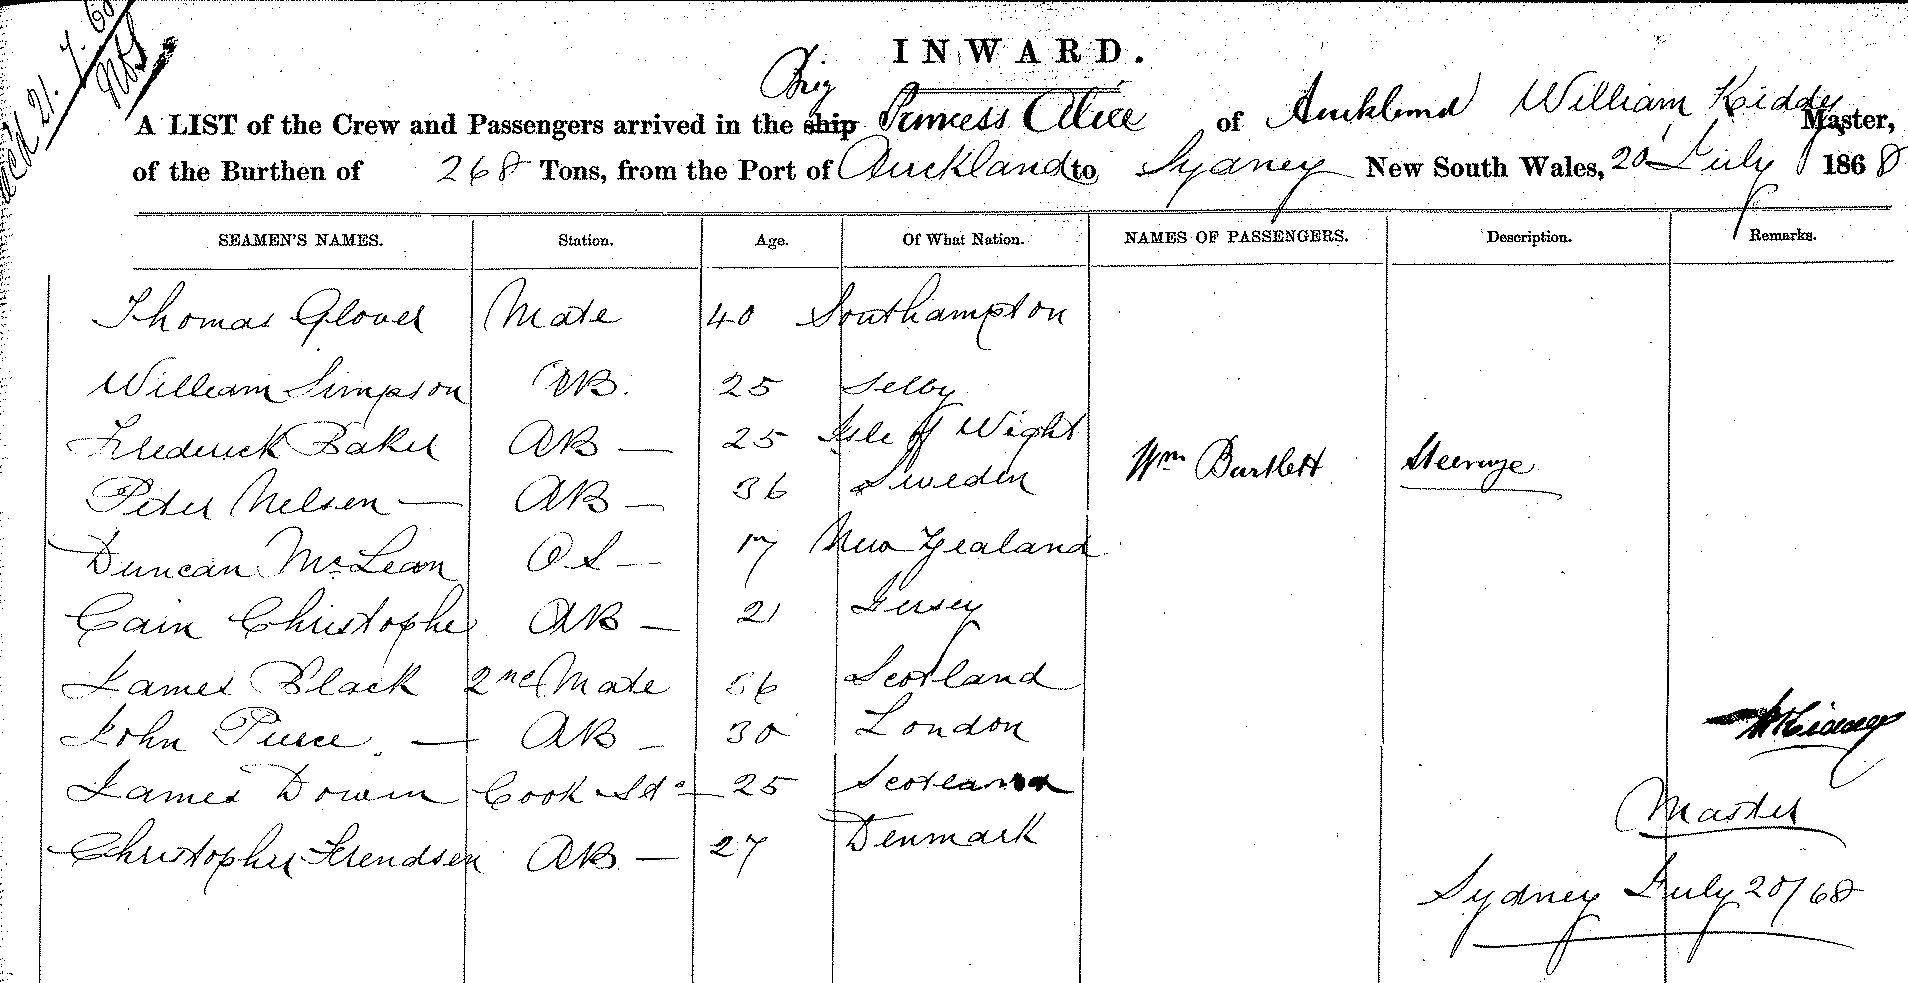 INWARD.
Brig
A LIST of the Crew and Passengers arrived in the ship Princess Alice of Auckland William Kiddy Master,
of the Burthen of 268 Tons, from the Port of Auckland to Sydney New South Wales, 20 July 1868
SEAMEN'S NAMES. Station. Age. Of What Nation. NAMES OF PASSENGERS. Description. Remarks.
Thomas Glover Mate 40 Southampton
William Simpson AB. 25 Selby
Frederick Baker AB — 25 Isle of Wight
Wm Bartlett Steerage
Peter Nelsen — AB — 36 Sweden
Duncan McLean OS — 17 New Zealand
Cain Christophe AB — 21 Jersey
James Black 2nd Mate 56 Scotland
John Pierce. — AB — 30 London
WKiddy
James Cook Std — 25 Scotland
Master
Christopher AB — 27 Denmark
Sydney July 20/68